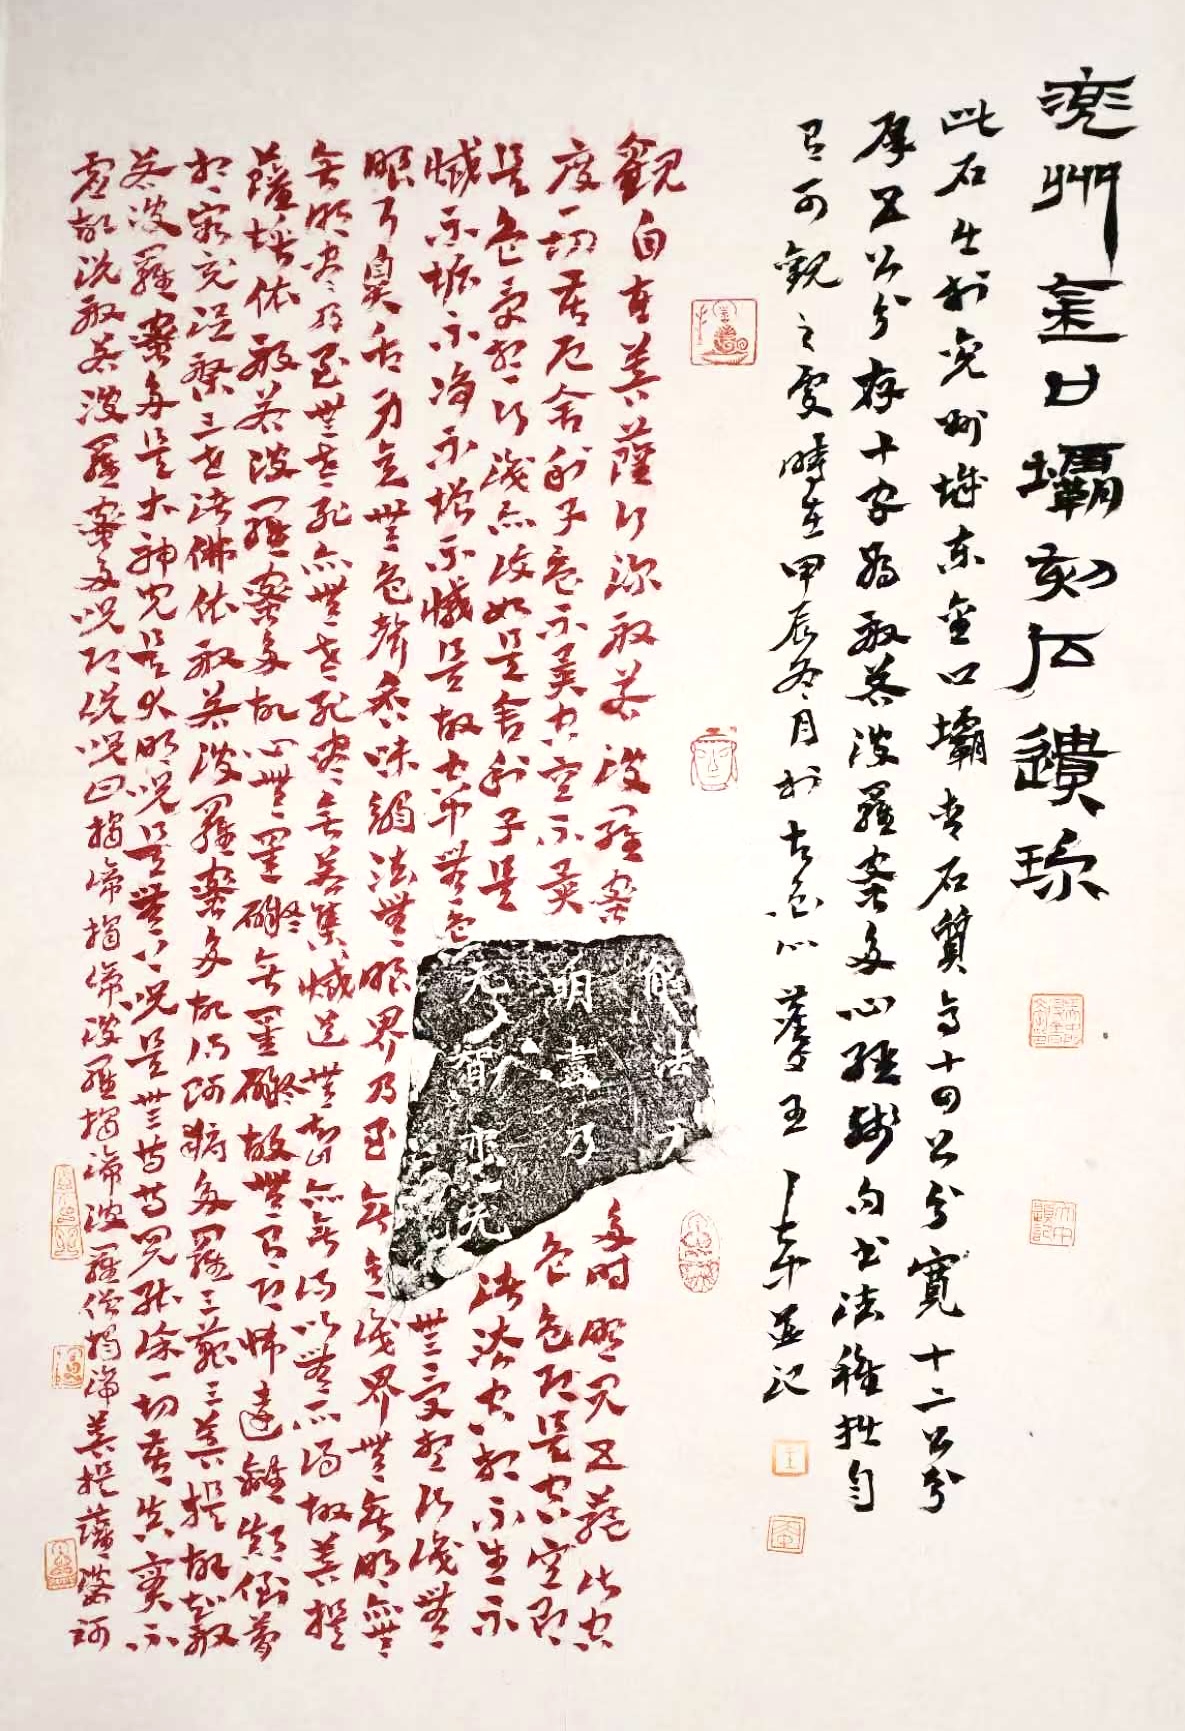 兖州金口壩刻石遺珍
此石出於兖州城東金口壩青石質高十四公分寬十二公分
厚五公分存十字為般若波羅蜜多心經殘句書法稚拙自
有可觀之處時在甲辰冬月於 並記
法无
明盡乃
无智亦无
觀自在菩薩行深般若波羅蜜多時照見五蘊皆空
度一切苦厄舍利子色不異空空不異色色即是空空即
是色受想行識亦復如是舍利子是諸法空相不生不
滅不垢不淨不增不滅是故空中無色無受想行識無
眼耳鼻舌身意無色聲香味觸法無眼界乃至無意識界無無明亦無
無明盡乃至無老死亦無老死盡無苦集滅道無智亦無得以無所得故菩提
薩埵依般若波羅蜜多故心無罣礙無罣礙故無有恐怖遠離顛倒夢
想究竟涅槃三世諸佛依般若波羅蜜多故得阿耨多羅三藐三菩提故知般
若波羅蜜多是大神咒是大明咒是無上咒是無等等咒能除一切苦真實不
虛故說般若波羅蜜多咒即說咒曰揭諦揭諦波羅揭諦波羅僧揭諦菩提薩婆訶